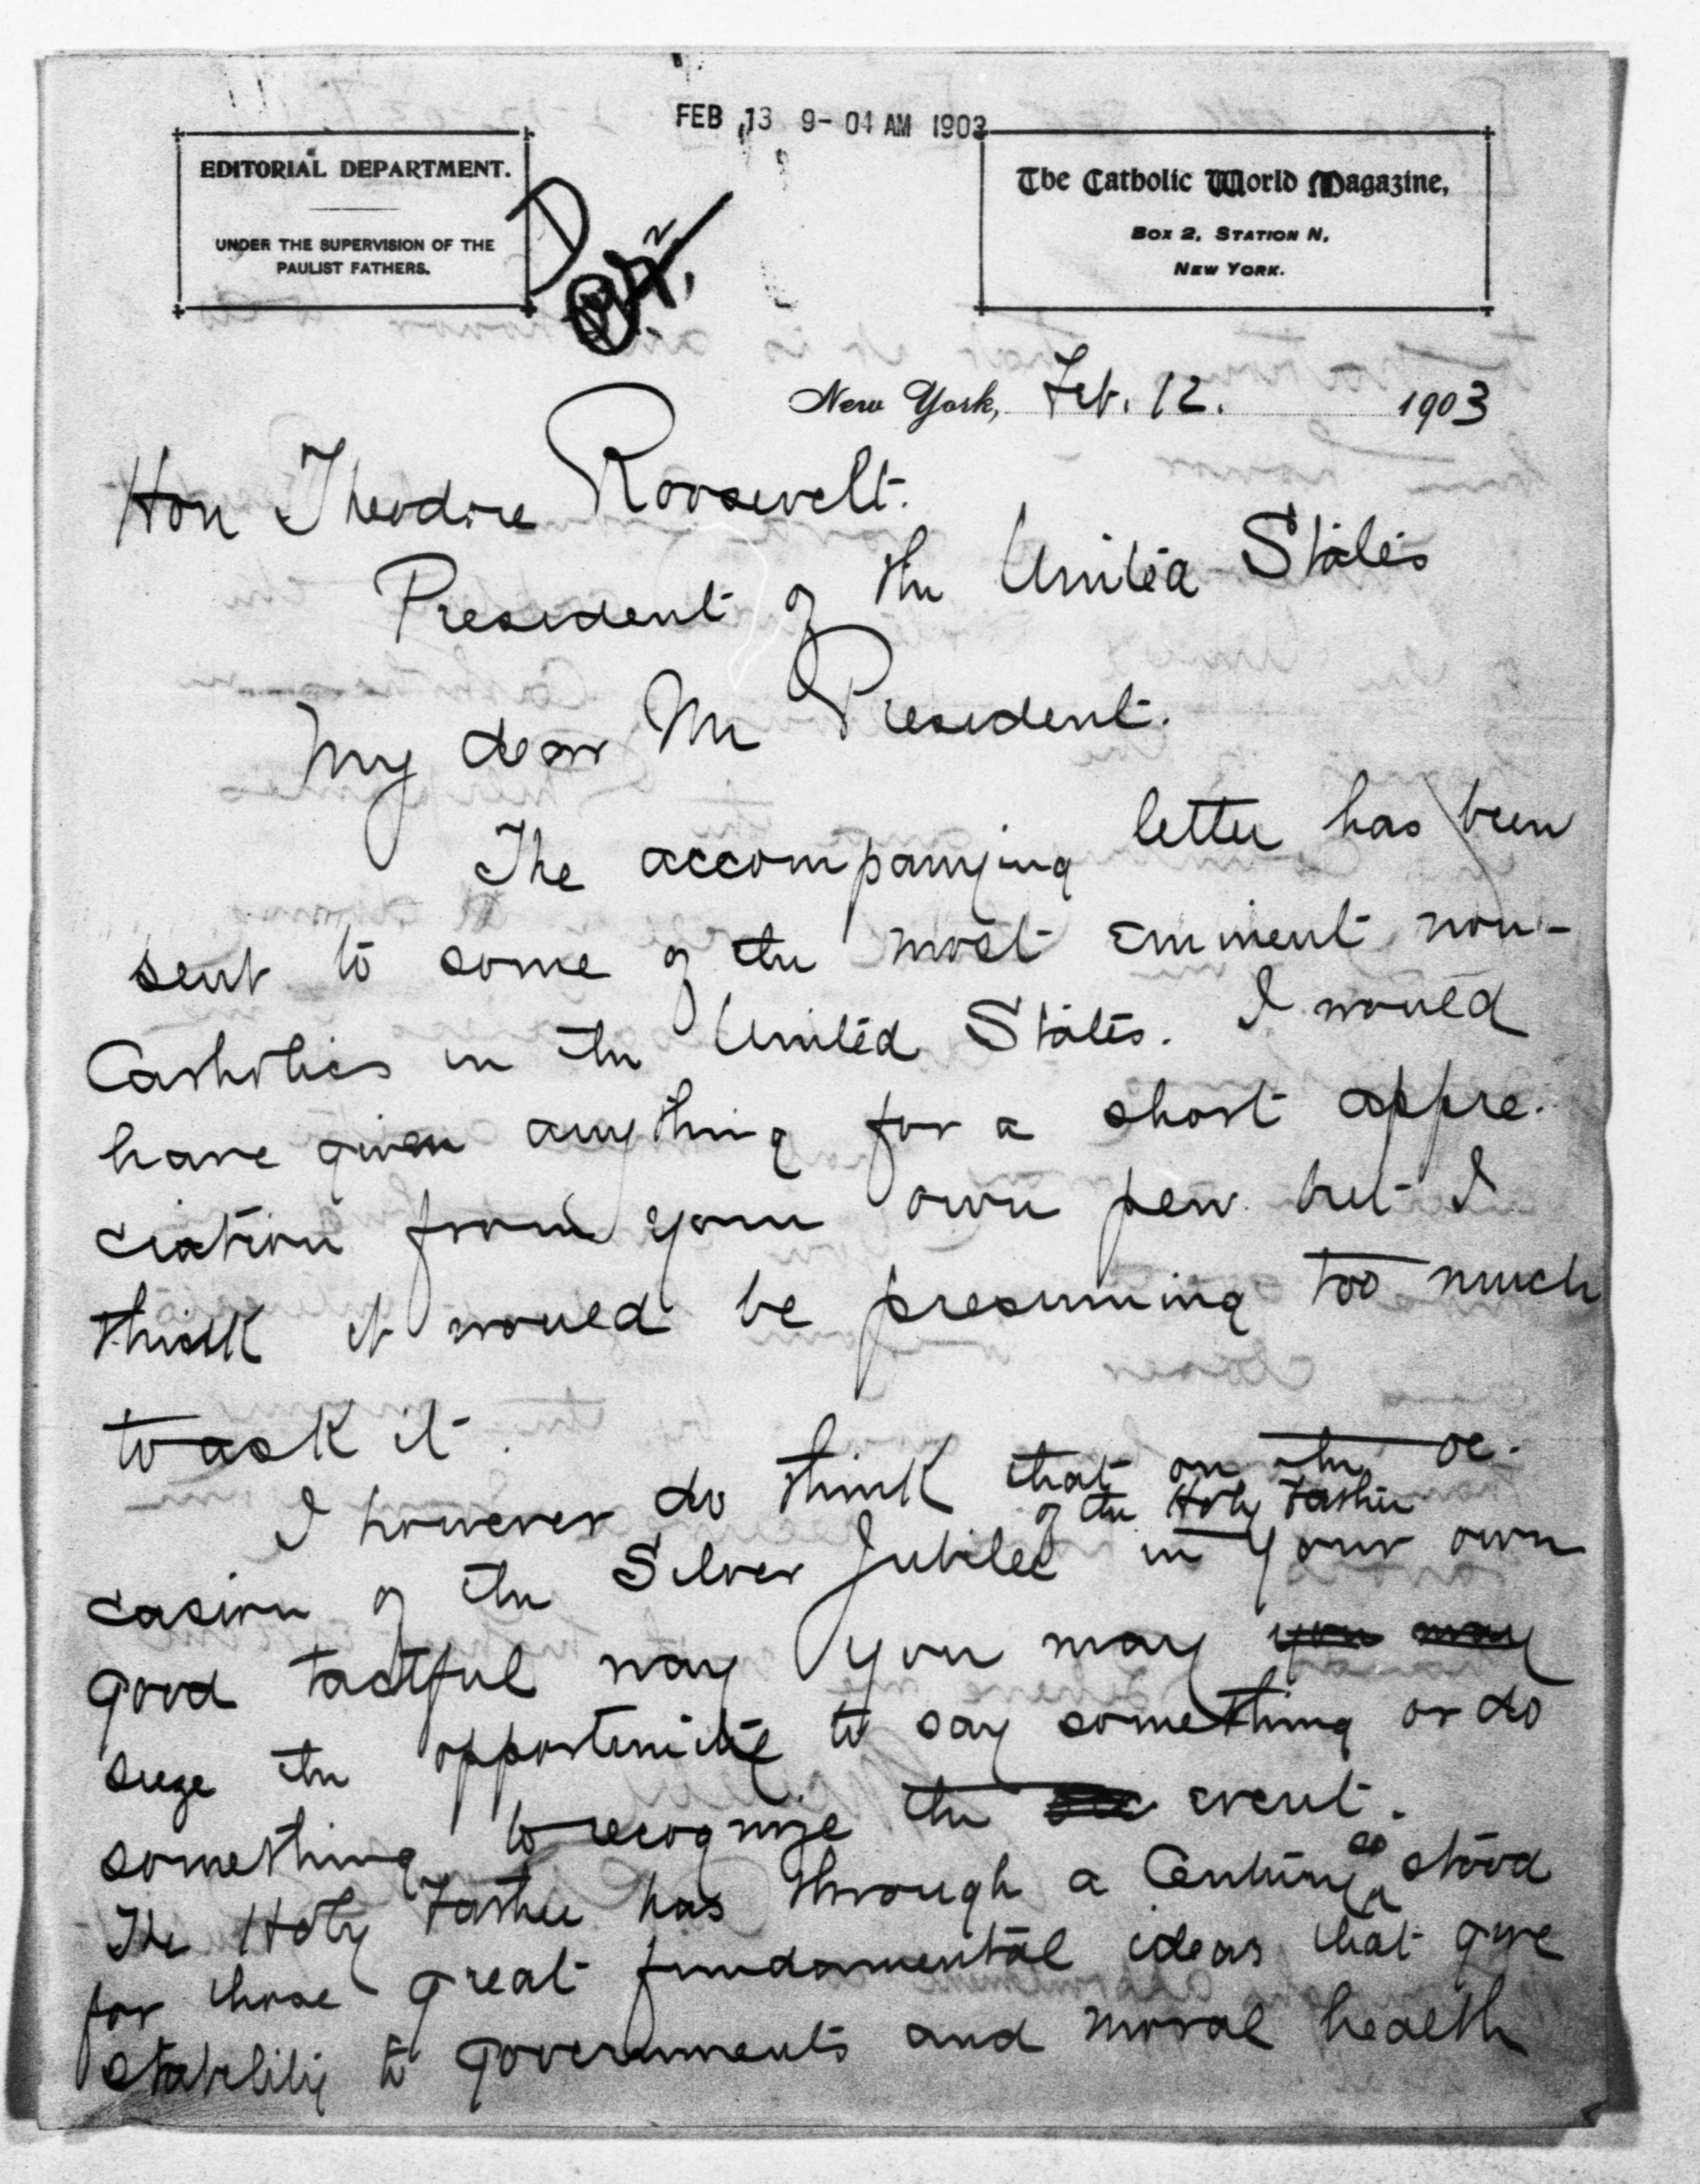 FEB 13 9-04 AM 1903
EDITORIAL DEPARTMENT.
UNDER THE SUPERVISION OF THE
PAULIST FATHERS.
The Catholic World Magazine,
BOX 2, STATION N,
NEW YORK.
New York, Feb. 12. 1903
Hon Theodore Roosevelt.
President of the United States
My dear Mr President.
The accompanying letter has been
sent to some of the most eminent non-
Catholics in the United States. I would
have given anything for a short appre-
ciation from your own pen but I
think it would be presuming too much
to ask it.
I however do think that on the oc-
of the Holy Father
casion of the Silver Jubilee in your own
good tactful way you may you may
sieze the opportunity to say something or do
something to recognize the event.
The Holy Father has through a Century as stood
for those great fundamental ideas that give
stability to governments and moral health